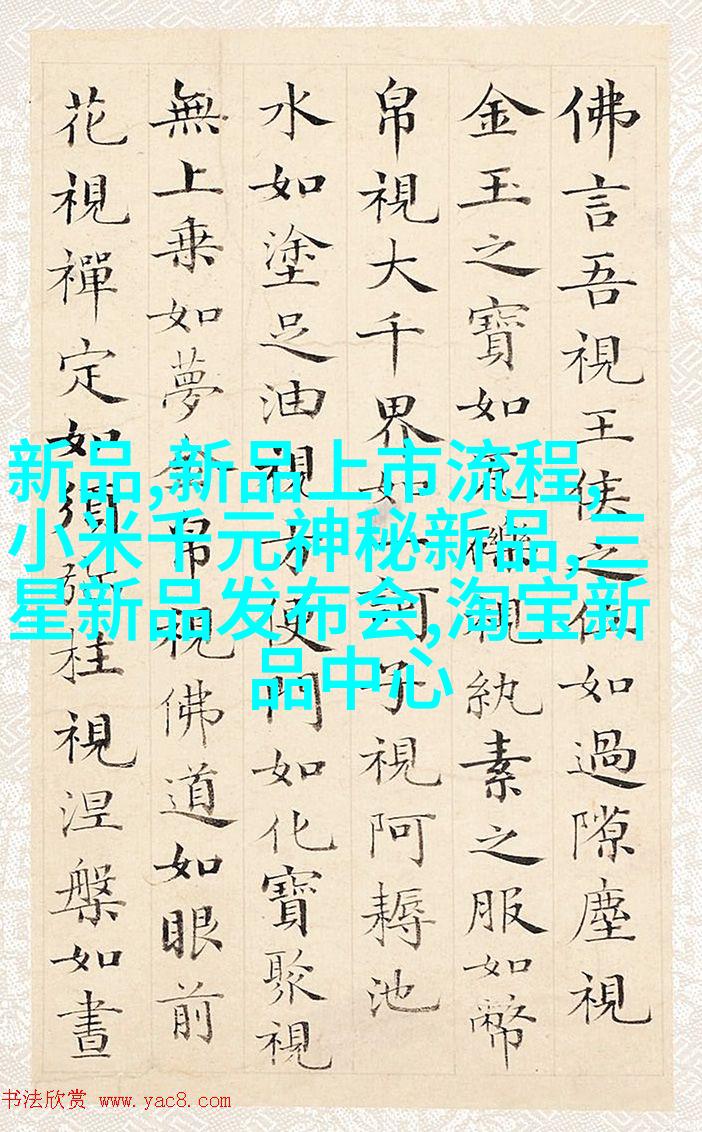 佛言吾視王侯之位如過隙塵視
金玉之寶如瓦礫視紈素之服如幣
帛視大千界如一訶子視阿耨池
水如塗足油視方便門如化寶聚視
無上乗如夢金帛視佛道如眼前
花視禪定如須弥柱視涅槃如晝
新品,新品上市流程,
小米千元神秘新品,三
星新品发布会,淘宝新
品中心
书法欣赏 www.yac8.com